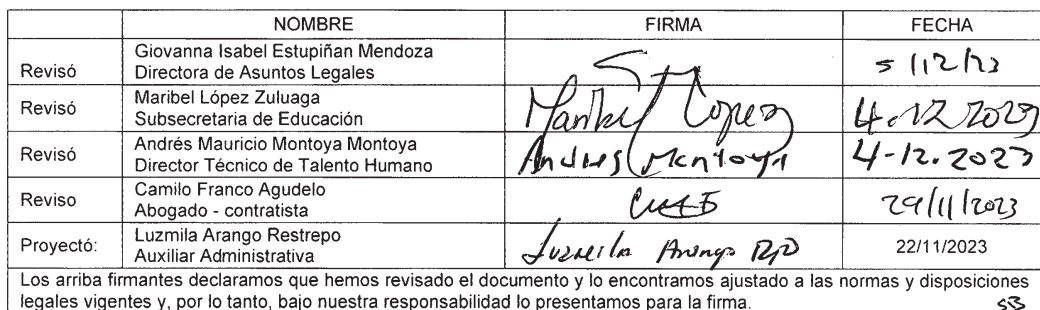 NOMBRE FIRMA FECHA
Revisó Giovanna Isabel Estupiñan Mendoza
Directora de Asuntos Legales 5/12/23
Revisó Maribel López Zuluaga
Subsecretaria de Educación Maribel Lopez 4.12.2023
Revisó Andrés Mauricio Montoya Montoya
Director Técnico de Talento Humano Andres Montoya 4-12.2023
Reviso Camilo Franco Agudelo
Abogado - contratista 29/11/2023
Proyectó: Luzmila Arango Restrepo
Auxiliar Administrativa Luzmila Arango 22/11/2023
Los arriba firmantes declaramos que hemos revisado el documento y lo encontramos ajustado a las normas y disposiciones
legales vigentes y, por lo tanto, bajo nuestra responsabilidad lo presentamos para la firma.